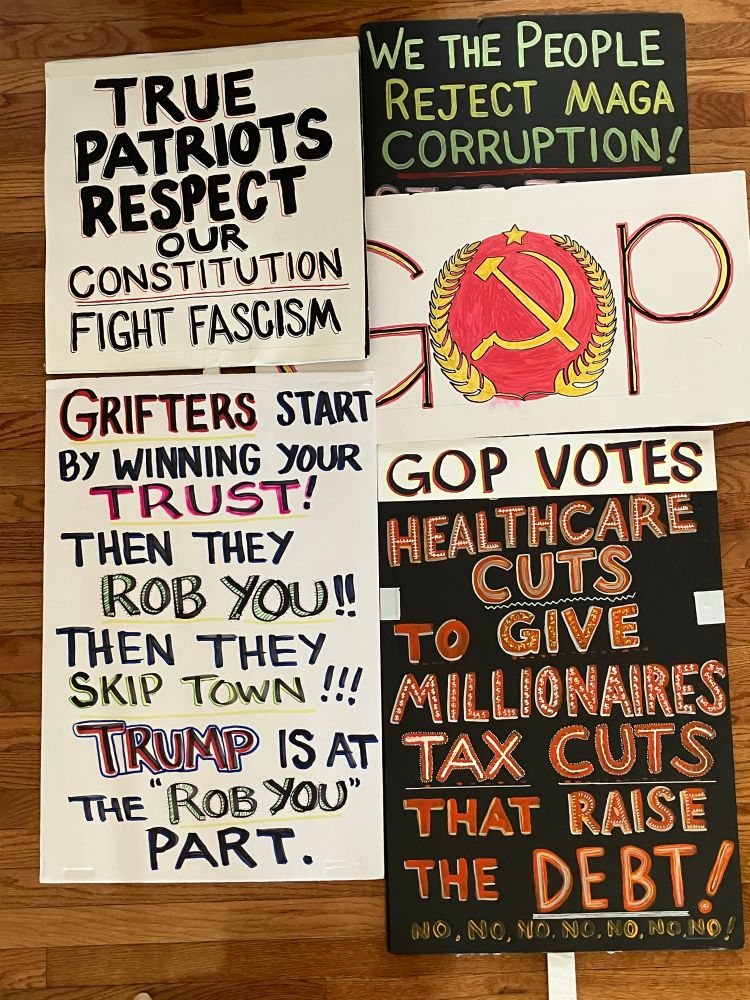 TRUE
PATRIOTS
RESPECT
OUR
CONSTITUTION
FIGHT FASCISM
WE THE PEOPLE
REJECT MAGA
CORRUPTION!
GOP
GRIFTERS START
BY WINNING YOUR
TRUST!
THEN THEY
ROB YOU!!
THEN THEY
SKIP TOWN!!!
TRUMP IS AT
THE "ROB YOU"
PART.
GOP VOTES
HEALTHCARE
CUTS
TO GIVE
MILLIONAIRES
TAX CUTS
THAT RAISE
THE DEBT!
NO, NO, NO, NO, NO, NO, NO!